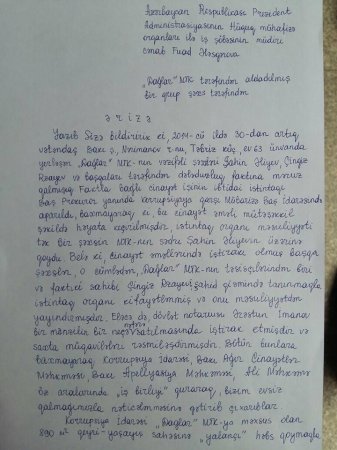 Azərbaycan Respublikası Prezident
Administrasiyasının Hüquq mühafizə
orqanları ilə iş şöbəsinin müdiri
cənab Fuad Ələsgərova
„Dağlar" MTK tərəfindən aldadılmış
bir qrup şəxs tərəfindən
ərizə
Yazıb Sizə bildiririk ki, 2014-cü ildə 30-dan artıq
vətəndaş Bakı ş., Nərimanov r-nu, Təbriz küç., ev 63 ünvanda
yerləşən „Dağlar" MTK-nın vəzifəli şəxsləri Şahin Əliyev, Çingiz
Rzayev və başqaları tərəfindən dələduzluq faktına məruz
qalmışıq. Faktla bağlı cinayət işinin ibtidai istintaqı
Baş Prokuror yanında Korrupsiyaya qarşı Mübarizə Baş İdarəsində
aparıldı, baxmayaraq ki, bu cinayət əməli mütəşəkkil
şəkildə həyata keçirilmişdir, istintaq orqanı məsuliyyəti
tək bir şəxsin MTK-nın sədri Şahin Əliyevin üzərinə
qoydu. Belə ki, cinayət əməllərində iştirakı olmuş başqa
şəxslər, o cümlədən, „Dağlar" MTK-nın təsisçilərindən biri
və faktiki sahibi Çingiz Rzayev şahid qismində tanınmaqla
istintaq orqanı kifayətlənmiş və onu məsuliyyətdən
yayındırmışdır. Eləcə də, dövlət notariusu Ərəstun İmanov
bir mənzilin bir neçə nəfərə satılmasında iştirak etmişdir və
saxta müqavilələri rəsmiləşdirmişdir. Bütün bunlara
baxmayaraq Korrupsiya İdarəsi, Bakı Ağır Cinayətlər
Məhkəməsi, Bakı Apellyasiya Məhkəməsi, Ali Məhkəmə
öz aralarında „iş birliyi" quraraq, bizim evsiz
qalmağımızla nəticələnməsinə gətirib çıxarıblar.
Korrupsiya İdarəsi „Dağlar" MTK-ya məxsus olan
890 m² qeyri-yaşayış sahəsinə „yalançı" həbs qoymaqla